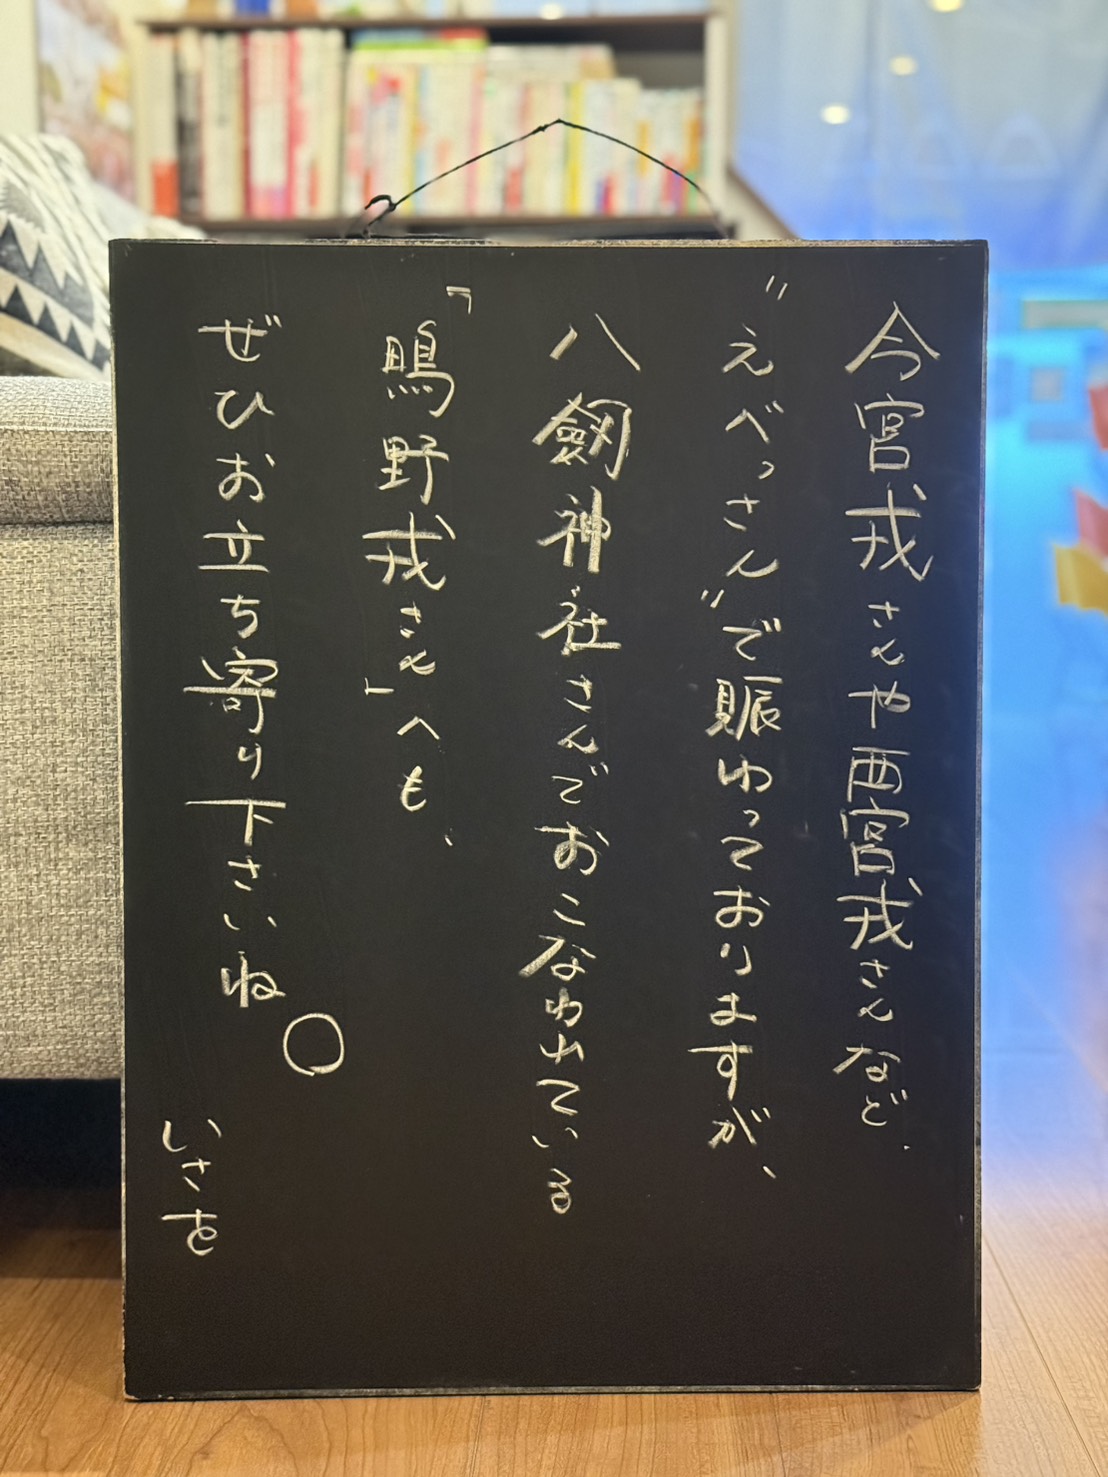 今宮戎さんや西宮戎さんなど、
〝えべっさん〟で賑わっておりますが、
八劔神社さんでおこなわれている
「鴫野戎さん」へも、
ぜひお立ち寄り下さいね○
いさを